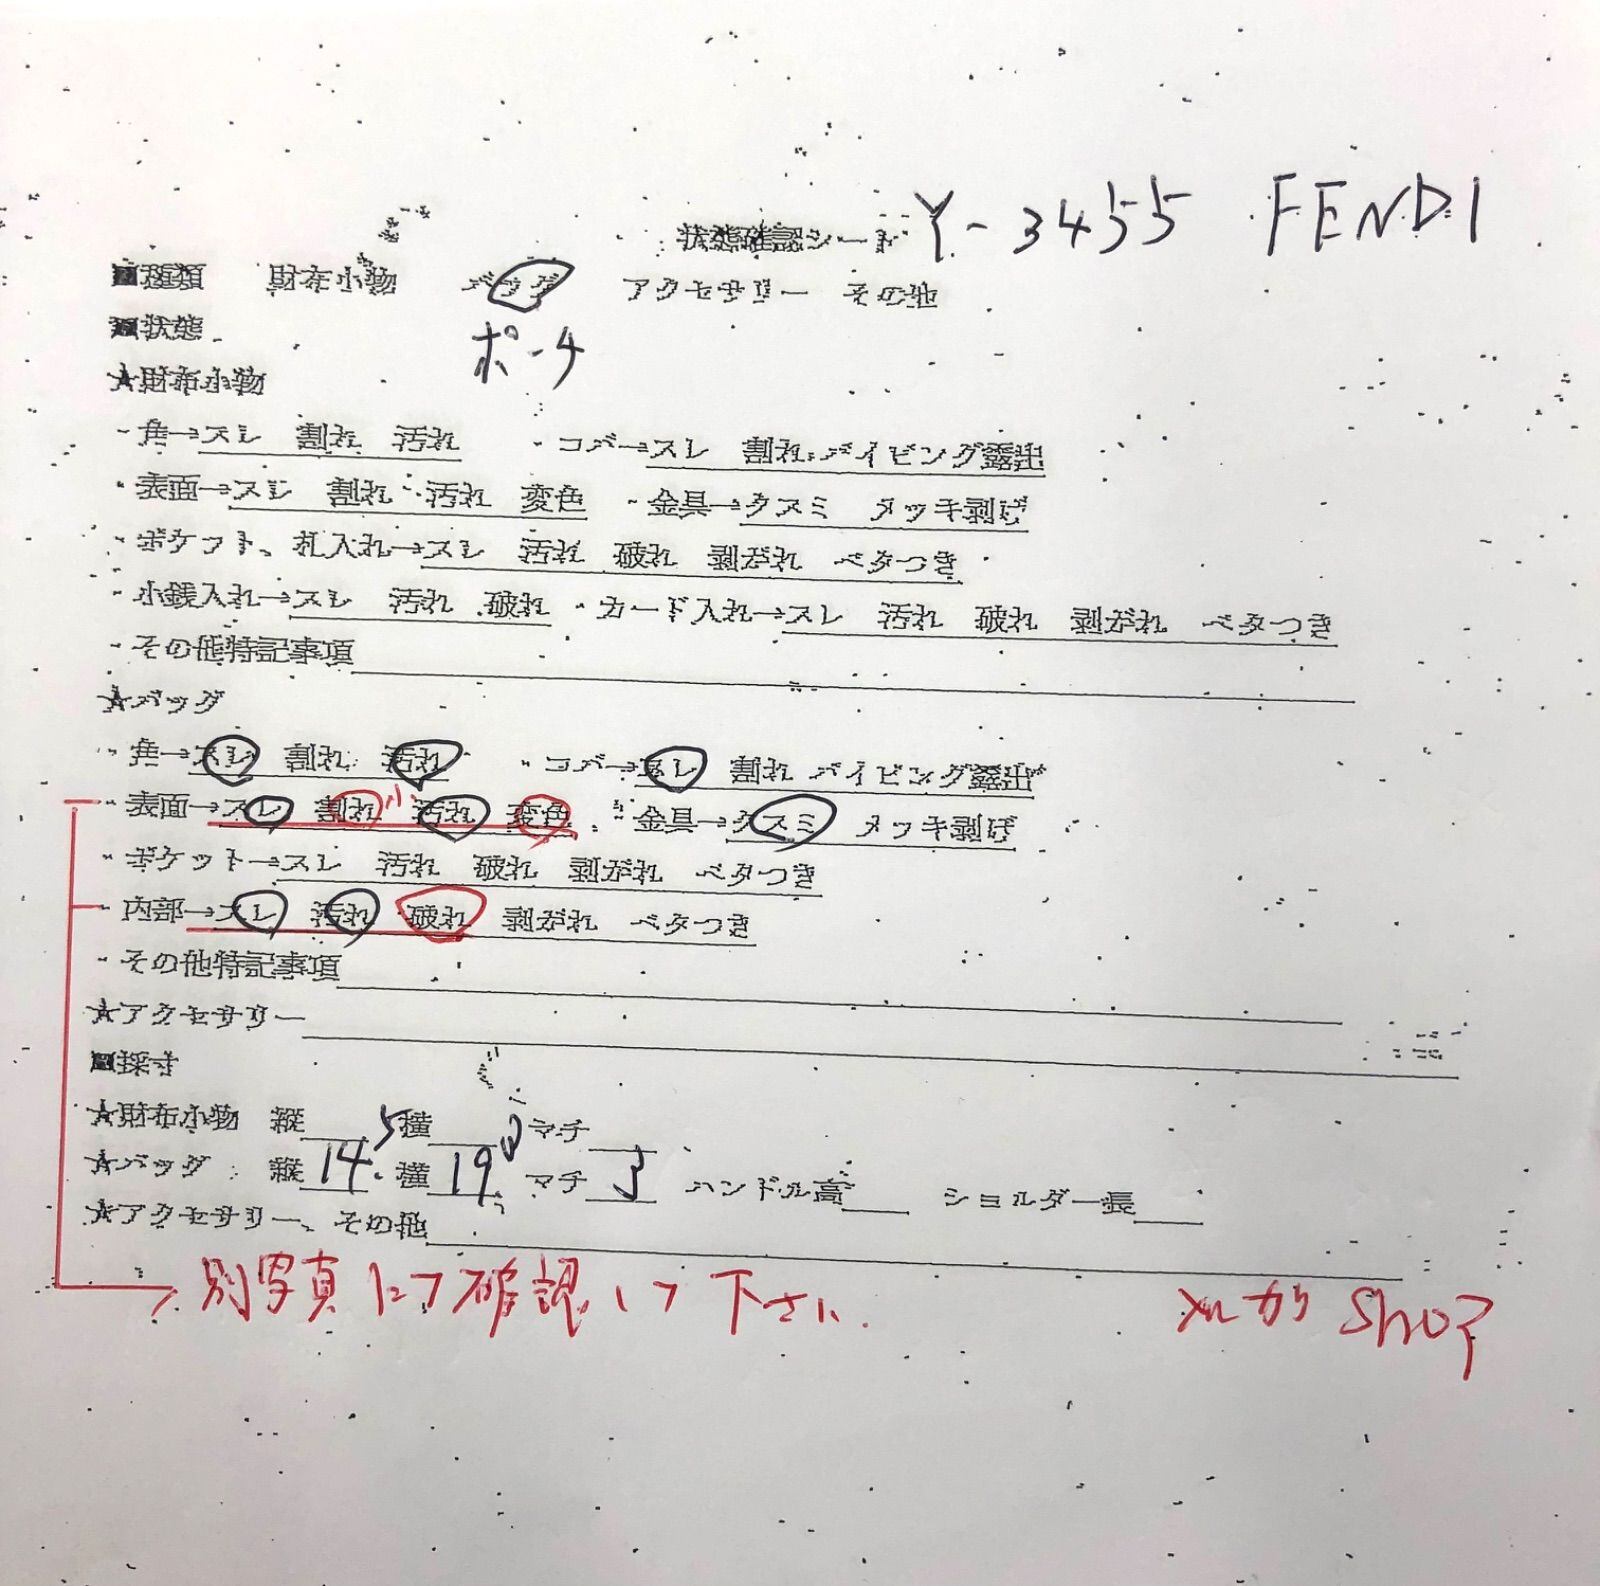 状態確認シート Y-3455 FENDI
■種類 財布小物 バッグ アクセサリー その他
■状態 ポーチ
★財布小物
・角→スレ 割れ 汚れ ・コバ→スレ 割れ パイピング露出
・表面→スレ 割れ 汚れ 変色 ・金具→クスミ メッキ剥げ
・ポケット、札入れ→スレ 汚れ 破れ 剥がれ ベタつき
・小銭入れ→スレ 汚れ 破れ ・カード入れ→スレ 汚れ 破れ 剥がれ ベタつき
・その他特記事項
★バッグ
・角→スレ 割れ 汚れ ・コバ→スレ 割れ パイピング露出
・表面→スレ 割れ 小 汚れ 変色 ・金具→クスミ メッキ剥げ
・ポケット→スレ 汚れ 破れ 剥がれ ベタつき
・内部→スレ 汚れ 破れ 剥がれ ベタつき
・その他特記事項
★アクセサリー
■採寸
★財布小物 縦 横 マチ
★バッグ 縦 14.5 横 19 マチ 3 ハンドル高 ショルダー長
★アクセサリー、その他
別写真にて確認して下さい.
SHOP